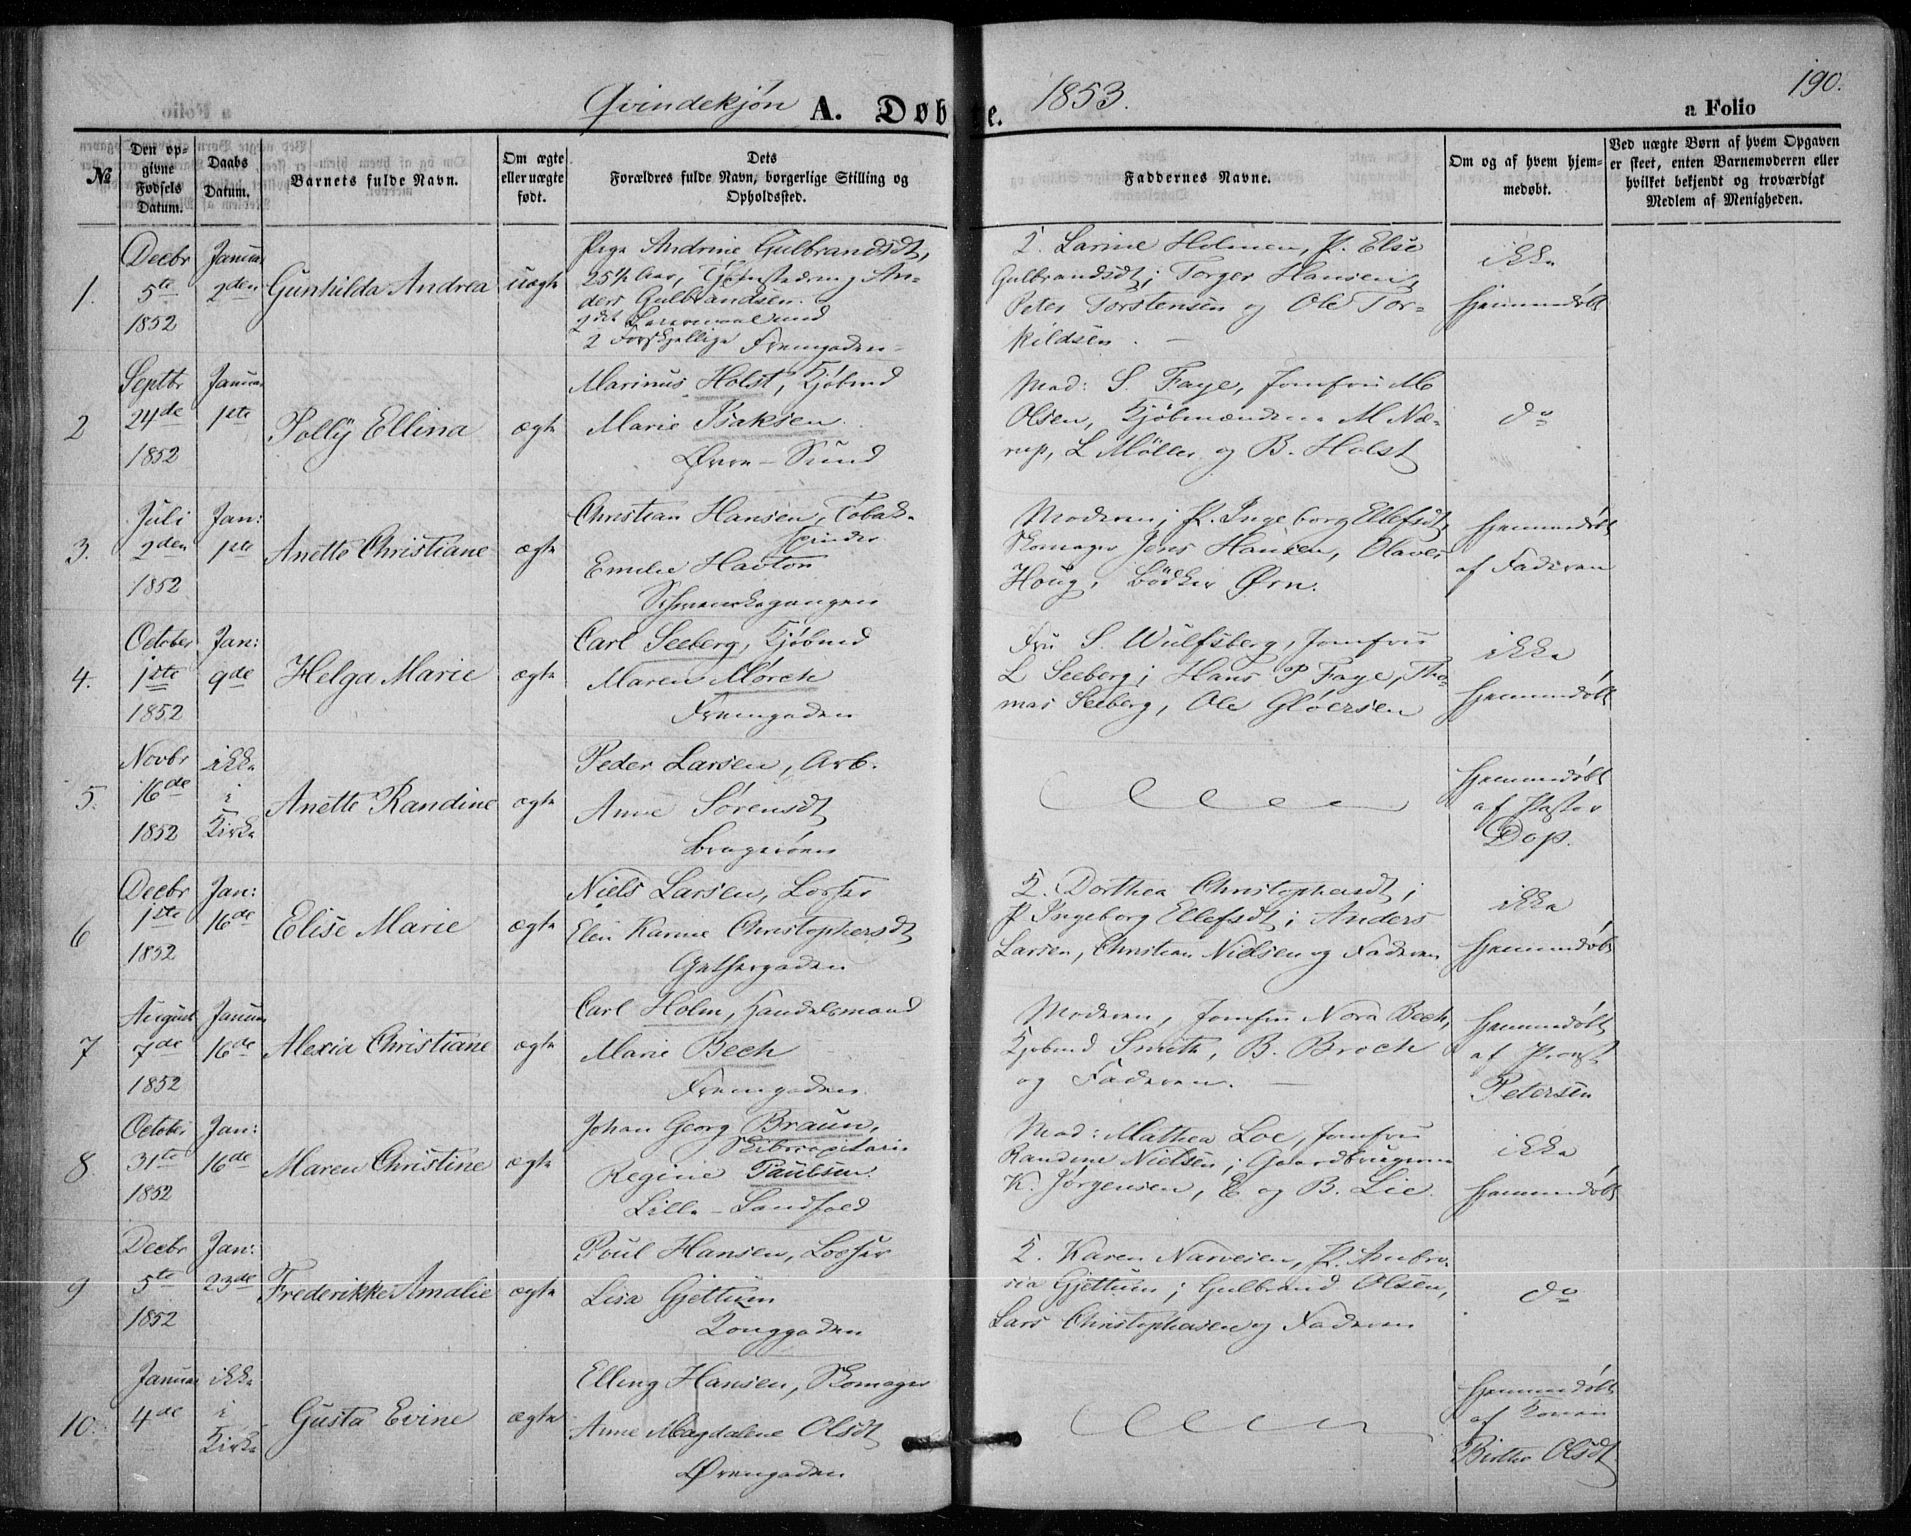 Qvindekjøn A. Døbte. 1853.
a Folio 190.
№
Den opgivne Fødsels Datum.
Daabs Datum.
Barnets fulde Navn.
Om ægte eller uægte født.
Dets Forældres fulde Navn, borgerlige Stilling og Opholdssted.
Faddernes Navne.
Om og af hvem hjemmedøbt.
Ved uægte Børn af hvem Opgaven er skeet, enten Barnemoderen eller hvilket bekjendt og troværdigt Medlem af Menigheden.
1.
Decbr
5te
1852
Januar
2den
Gunhilda Andrea
uægte
Pige Andrine Gulbrandsdt,
25½ Aar, og An-
ders Gulbrandsen.
2det Leiermaal med
2 Forskjellige Fremgaden
2. Larine Holmen, P. Else
Gulbrandsdt; Torger Hansen,
Peter Torstensen og Ole Tor-
kildsen.
ikke
hjemmedøbt
2
Septbr
24de
1852
Januar
1ste
Polly Ellina
ægte
Marinus Holst, Kjøbmd
Marie Isaksen
Øvre-Sund
Mad: S. Faye, Jomfru M
Olsen, Kjøbmændene M Næ-
rup, L Møller og B. Holst
do
3.
Juli
2den
1852
Jan:
1ste
Anette Christiane
ægte
Christian Hansen, Tobak-
spinder
Emelie Havton
Moderen; P. Ingeborg Ellefsdt,
Skomager Jens Hansen, Olaves
Houg, Bødker Ørn.
hjemmedøbt
af Faderen
4.
October
1ste
1852
Jan:
9de
Helga Marie
ægte
Carl Seeberg, Kjøbmd
Maren Mørch
Fremgaden
Fru S. Wulfsberg, Jomfru
L Seeberg; Hans P Faye, Tho-
mas Seeberg, Ole Gløersen
ikke
hjemmedøbt
5.
Novbr
16de
1852
ikke
i
Kirke
Anette Randine
ægte
Peder Larsen, Arb.
Anne Sørensdt
Bragerøen
hjemmedøbt
af Pastor
Dop.
6
Decbr
1ste
1852
Jan:
16de
Elise Marie
ægte
Niels Larsen, Lodser
Elen Karine Christophersdt
2. Dorthea Christophersdt;
P Ingeborg Ellefsdt; Anders
Larsen, Christian Nielsen og Faderen
ikke
hjemmedøbt
7
August
7de
1852
Januar
16de
Alexia Christiane
ægte
Carl Holm, Handelsmand
Marie Bech
Fremgaden
Moderen, Jomfru Nora Bech,
Kjøbmd Smith, B. Broch
og Faderen.
hjemmedøbt
af Provst
Petersen
8.
October
31te
1852
Jan:
16de
Maren Christine
ægte
Johan Georg Braun,
Regine Paulsen.
Lille-Landfald
Mad: Mathea Loe, Jomfru
Randine Nielsen; Gaardbrugerne
K. Jørgensen, E og B. Lie.
ikke
hjemmedøbt
9
Decbr
5te
1852
Jan:
23de
Frederikke Amalie
ægte
Poul Hansen, Lodser
Lisa Gjettum
Tonggaden
2. Karen Narvesen, P. Ambro-
sia Gjettum; Gulbrand Olsen,
Lars Christophersen og Faderen
do
10.
Januar
4de
ikke
i
Kirke
Gusta Evine
ægte
Elling Hansen, Skomager
Anne Magdalene Olsdt
Øvregaden
hjemmedøbt
af Konen
Birthe Olsdt